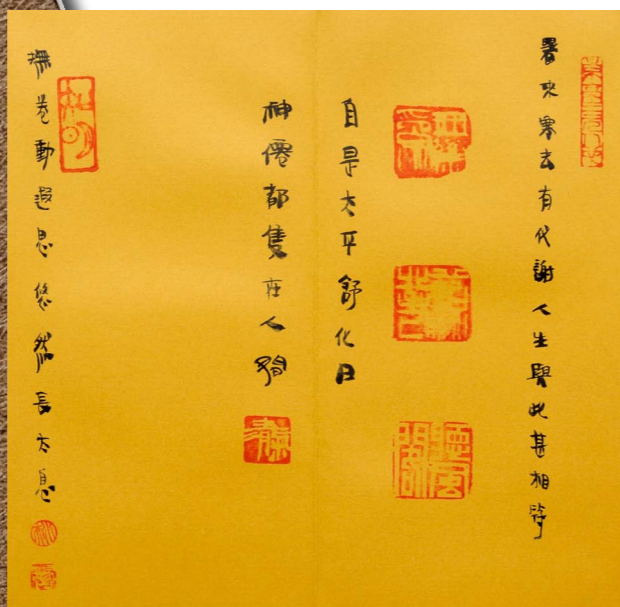 暑來寒去有代謝人生與此甚相
聽風閣
自是太平舒化日
神僊都隻在人間
撫卷動遐思悠然長太息